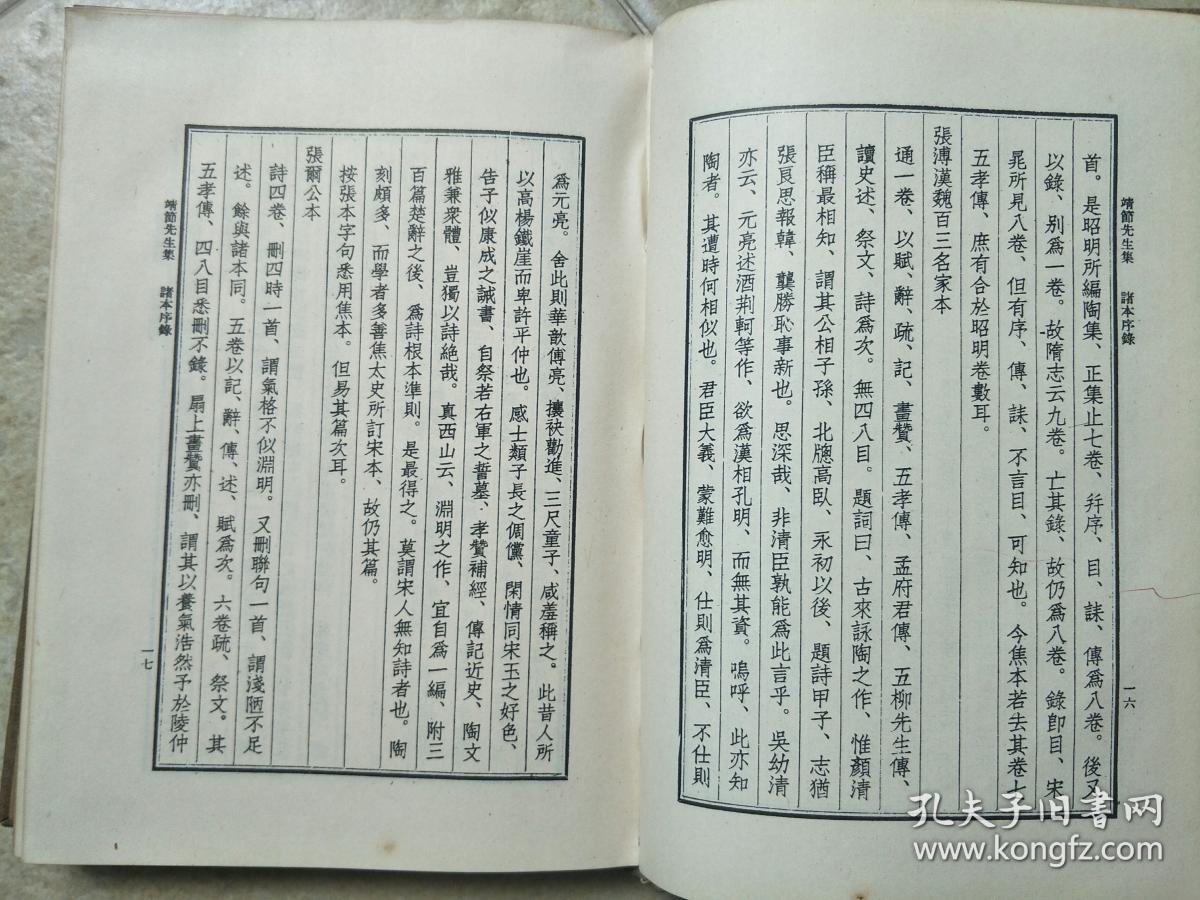 靖節先生集 諸本序錄
一六
首。是昭明所編陶集、正集止七卷、幷序、目、誄、傳爲八卷。後又
以錄、别爲一卷。故隋志云九卷。亡其錄、故仍爲八卷。錄卽目、宋
晁所見八卷、但有序、傳、誄、不言目、可知也。今焦本若去其卷七
五孝傳、庶有合於昭明卷數耳。
張溥漢魏百三名家本
通一卷、以賦、辭、疏、記、畫贊、五孝傳、孟府君傳、五柳先生傳、
讀史述、祭文、詩爲次。無四八目。題詞曰、古來詠陶之作、惟顏清
臣稱最相知、謂其公相子孫、北牕高臥、永初以後、題詩甲子、志猶
張良思報韓、龔勝恥事新也。思深哉、非清臣孰能爲此言乎。吳幼清
亦云、元亮述酒荆軻等作、欲爲漢相孔明、而無其資。嗚呼、此亦知
陶者。其遭時何相似也。君臣大義、蒙難愈明、仕則爲清臣、不仕則
爲元亮。舍此則華歆傅亮、攘袂勸進、三尺童子、咸羞稱之。此昔人所
以高楊鐵崖而卑許平仲也。感士類子長之倜儻、閑情同宋玉之好色、
告子似康成之誡書、自祭若右軍之誓墓、孝贊補經、傳記近史、陶文
雅兼衆體、豈獨以詩絶哉。真西山云、淵明之作、宜自爲一編、附三
百篇楚辭之後、爲詩根本準則。是最得之。莫謂宋人無知詩者也。陶
刻頗多、而學者多善焦太史所訂宋本、故仍其篇。
按張本字句悉用焦本。但易其篇次耳。
張爾公本
詩四卷、刪四時一首、謂氣格不似淵明。又刪聯句一首、謂淺陋不足
述。餘與諸本同。五卷以記、辭、傳、述、賦爲次。六卷疏、祭文。其
五孝傳、四八目悉刪不錄。扇上畫贊亦刪、謂其以養氣浩然予於陵仲
靖節先生集 諸本序錄
一七
孔夫子旧书网
www.kongfz.com